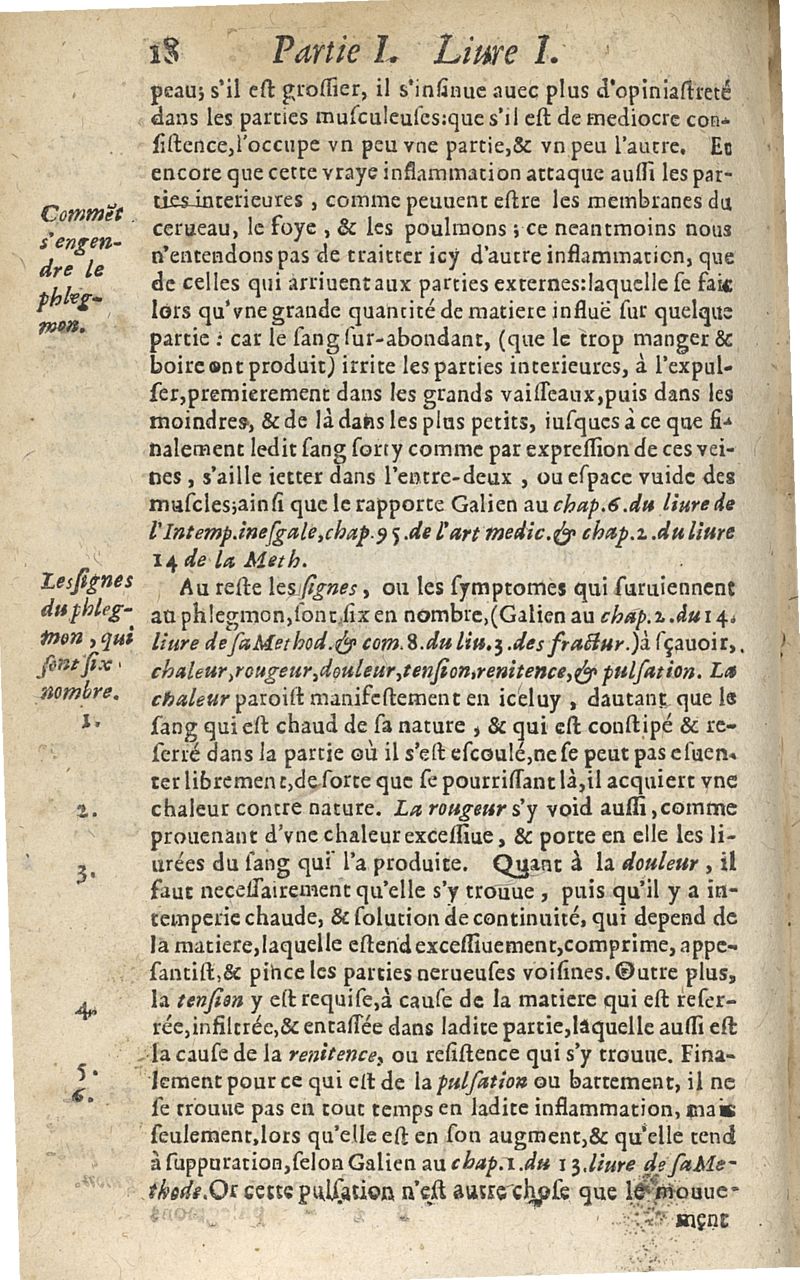 18 Partie I. Liure I.
peau; s'il est grossier, il s'insinue auec plus d'opiniastreté
dans les parties musculeuses:que s'il est de mediocre con-
sistence,l'occupe vn peu vne partie,& vn peu l'autre. Et
encore que cette vraye inflammation attaque aussi les par-
ties interieures , comme peuuent estre les membranes du
cerueau, le foye , & les poulmons ; ce neantmoins nous
n'entendons pas de traitter icy d'autre inflammation, que
de celles qui arriuent aux parties externes:laquelle se fait
lors qu'vne grande quantité de matiere influë sur quelque
partie : car le sang sur-abondant, (que le trop manger &
boire ont produit) irrite les parties interieures, à l'expul-
ser,premierement dans les grands vaisseaux,puis dans les
moindres, & de là dans les plus petits, iusques à ce que fi-
nalement ledit sang sorty comme par expression de ces vei-
nes , s'aille ietter dans l'entre-deux , ou espace vuide des
muscles;ainsi que le rapporte Galien au chap.6.du liure de
l'Intemp.inesgale,chap.95.de l'art medic.& chap.2.du liure
14 de la Meth.
Commẽt
s'engen-
dre le
phleg-
mon.
Au reste les signes, ou les symptomes qui suruiennent
au phlegmon,sont six en nombre,(Galien au chap.2.du 14.
liure de sa Method.& com.8.du liu.3.des fractur.)à sçauoir,
chaleur,rougeur,douleur,tension,renitence,& pulsation. La
chaleur paroist manifestement en iceluy , dautant que le
sang qui est chaud de sa nature , & qui est constipé & re-
serré dans la partie où il s'est escoulé,ne se peut pas esuen-
ter librement,de sorte que se pourrissant là,il acquiert vne
chaleur contre nature. La rougeur s'y void aussi,comme
prouenant d'vne chaleur excessiue , & porte en elle les li-
urées du sang qui l'a produite. Quant à la douleur , il
faut necessairement qu'elle s'y trouue , puis qu'il y a in-
temperie chaude, & solution de continuité, qui depend de
la matiere,laquelle estend excessiuement,comprime, appe-
santist,& pince les parties nerueuses voisines. Outre plus,
la tension y est requise,à cause de la matiere qui est reser-
rée,infiltrée,& entassée dans ladite partie,laquelle aussi est
la cause de la renitence, ou resistence qui s'y trouue. Fina-
lement pour ce qui est de la pulsation ou battement, il ne
se trouue pas en tout temps en ladite inflammation, mais
seulement,lors qu'elle est en son augment,& qu'elle tend
à suppuration,selon Galien au chap.1.du 13.liure de sa Me-
thode.Or cette pulsation n'est autre chose que le mouue-
ment
Les signes
du phleg-
mon , qui
sont six
nombre.
1.
2.
3.
4.
5.
6.